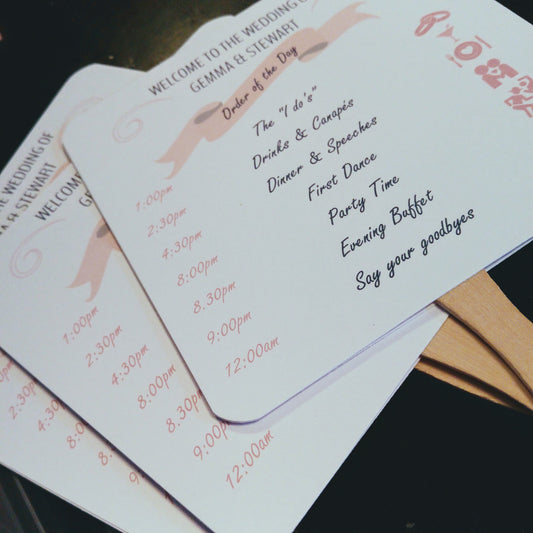 WELCOME TO THE WEDDING OF
GEMMA & STEWART
Order of the Day
1:00pm The "I do's"
2:30pm Drinks & Canapés
4:30pm Dinner & Speeches
8:00pm First Dance
8.30pm Party Time
9:00pm Evening Buffet
12:00am Say your goodbyes
WELCOME
1:00pm
2:30pm
4:30pm
8:00pm
8.30pm
9:00pm
12:00am
THE WEDDING OF
& STEWART
2:30pm
4:30
8:00p
8.30
9:0